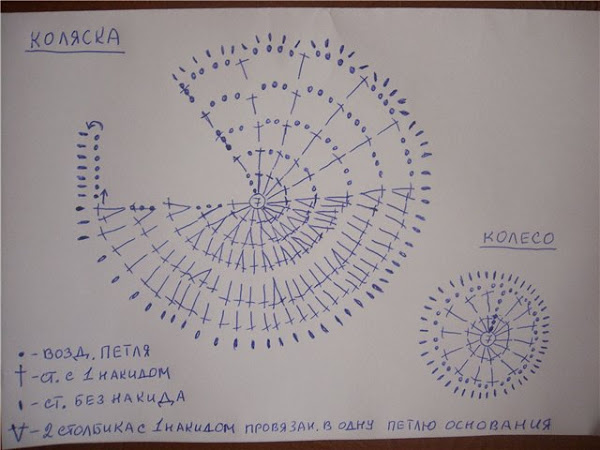 КОЛЯСКА
7
КОЛЕСО
7
- ВОЗД. ПЕТЛЯ
- СТ. С 1 НАКИДОМ
- СТ. БЕЗ НАКИДА
- 2 СТОЛБИКА С 1 НАКИДОМ ПРОВЯЗАН. В ОДНУ ПЕТЛЮ ОСНОВАНИЯ